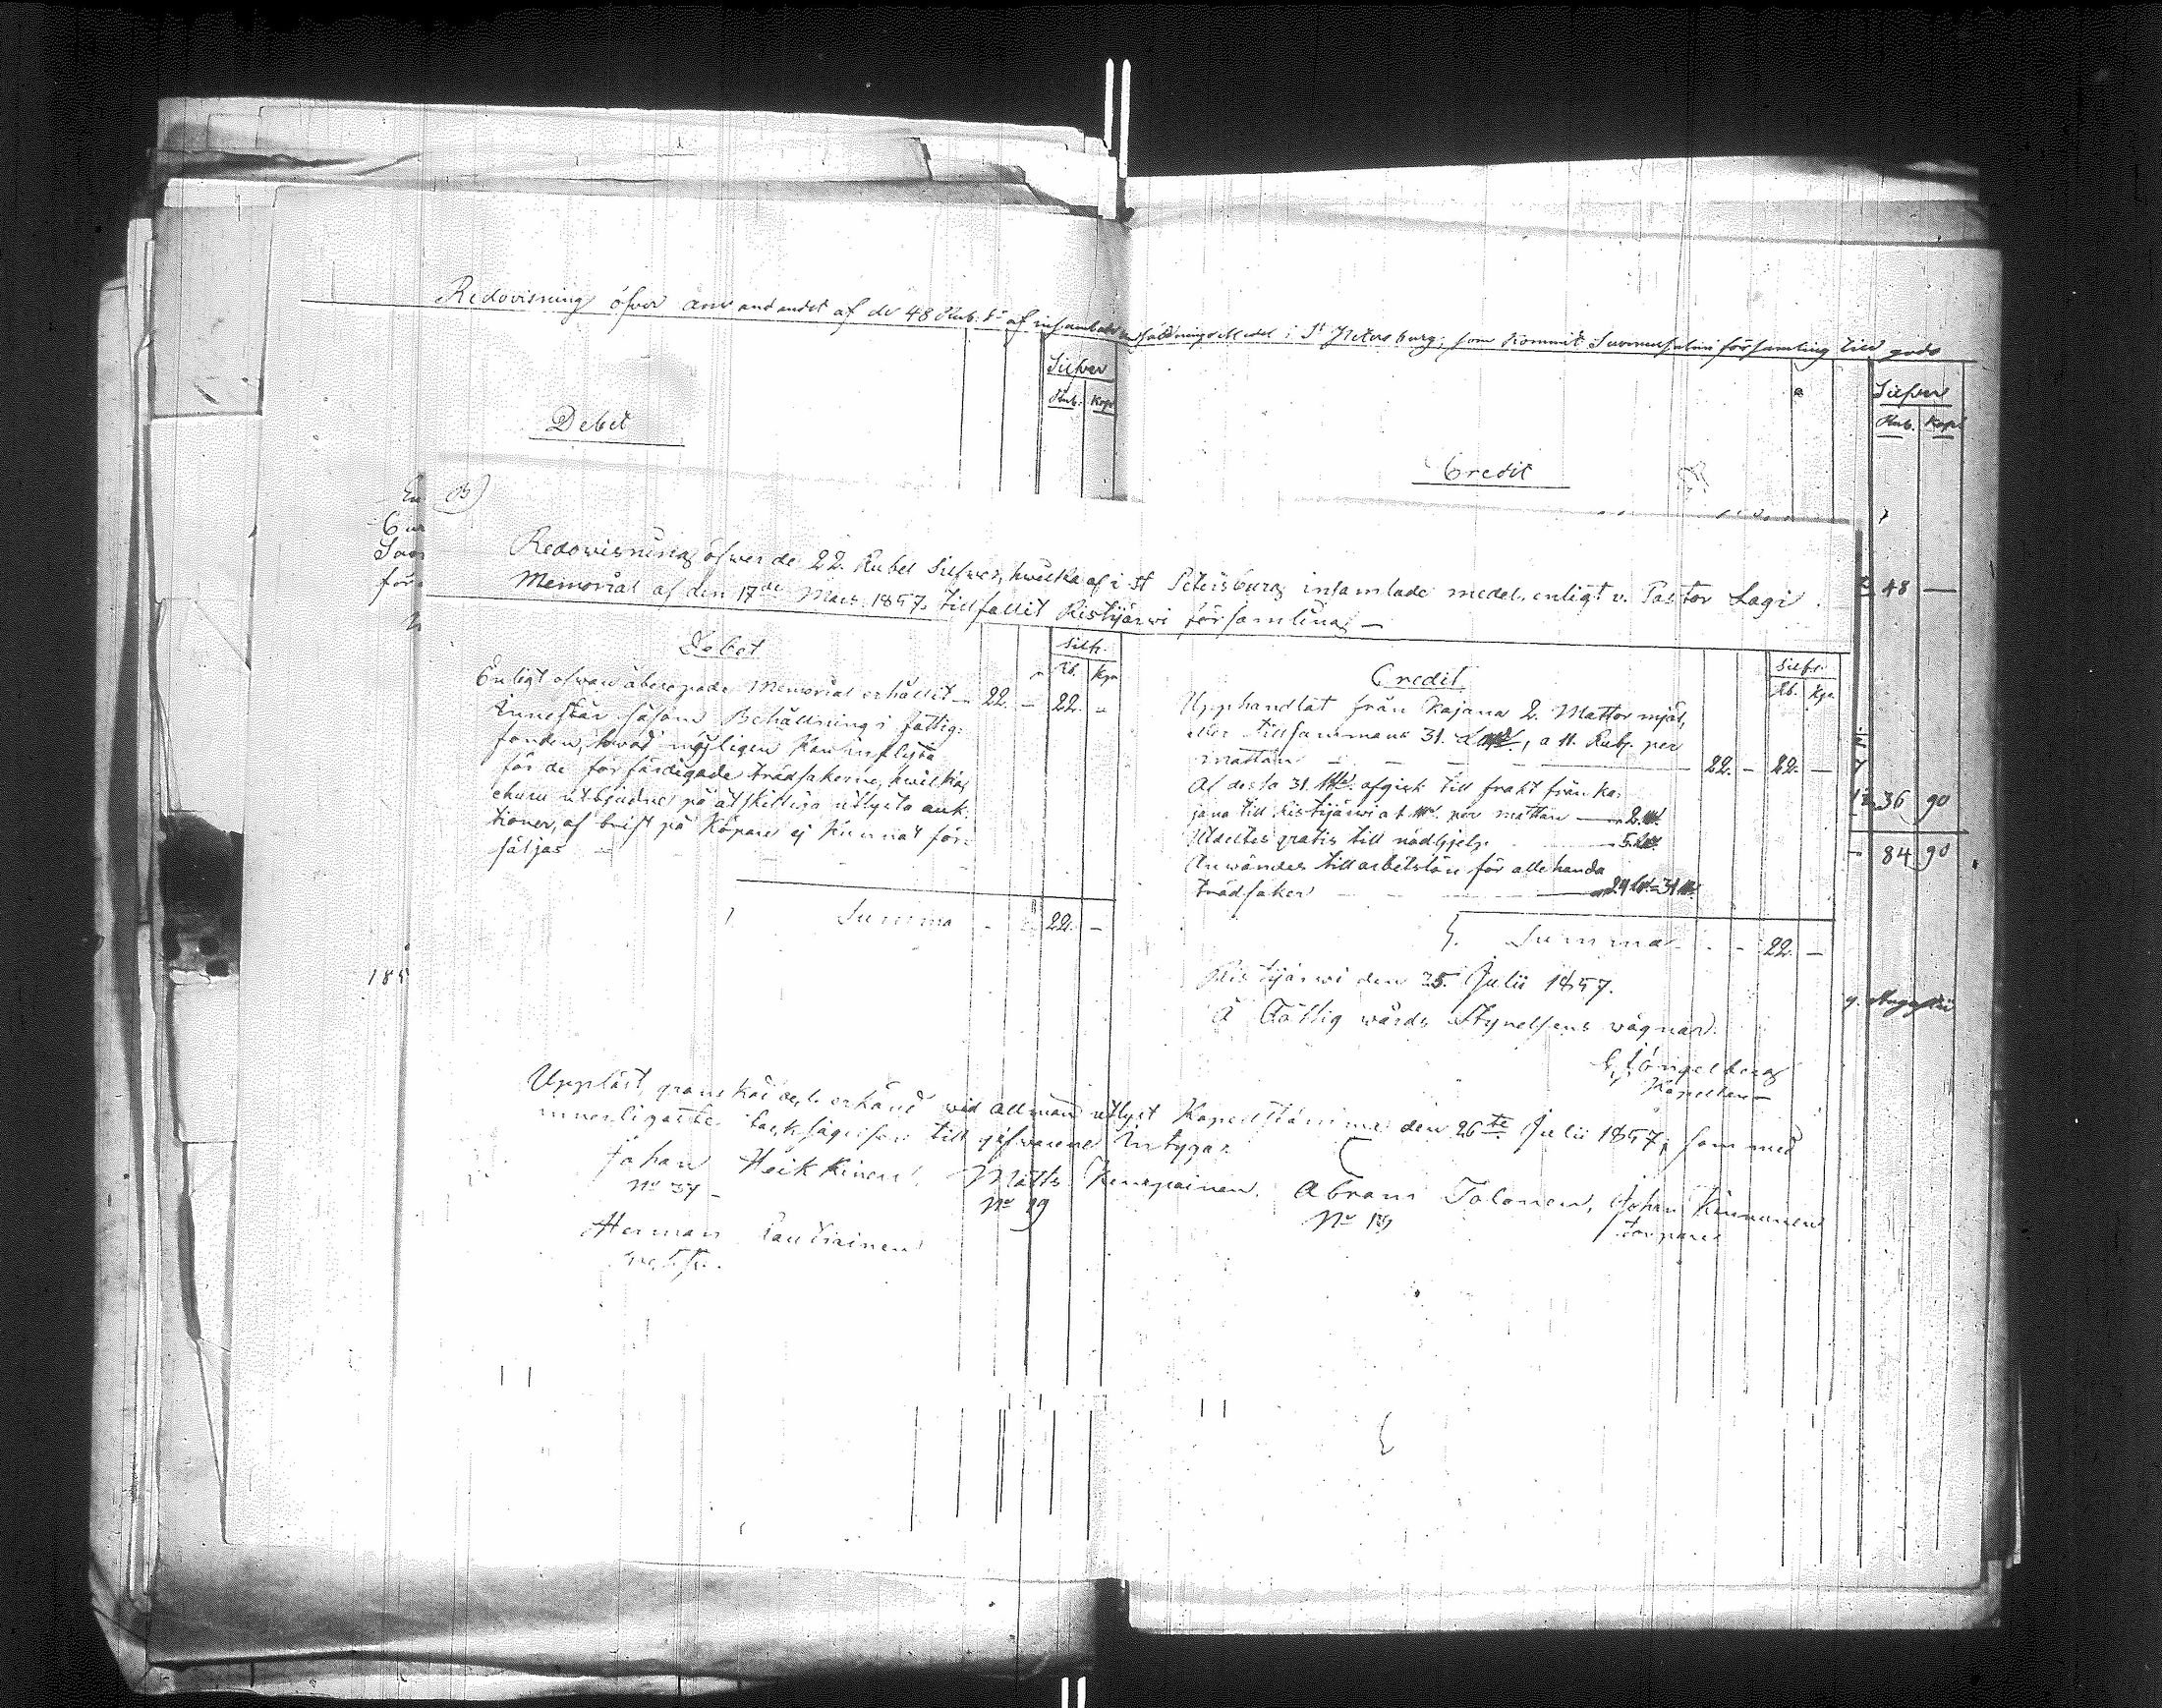 Redovisning öfver användandet af de 48 Rub. Sr af insamlade undsättnings Medel i St Petersburg, som kommit Suomussalmi församling till godo
Silfver
Rub. Kop
Debet
Silfver
Rub. Kop
Credit
En
Su
för
48 —
36 90
84 90
185
Augusti
B)
Redowisning öfwer de 22. Rubel Silfwer, hwilka af i St Petersburg insamlade medel, enligt v. Pastor Lagi
Memorial af den 17de Mars 1857. tillfallit Ristijärwi församling —
Debet
Silfr.
Rb. Kp.
Enligt ofwan åberopade Memorial erhållit — 22. — 22. „
Innestår såsom Behållning i fattig-
fonden, hwad möjligen kan inflyta
för de förfärdigade trädsakerne, hwilka,
ehuru utbjudne på åtskilliga utlysta auk-
tioner, af brist på Köpare ej kunnat för-
säljas —
Summa — 22. —
Credit
Silfr.
Rb. Kp.
Upphandlat från Kajana 2. Mattor mjöl,
eller tillsammans 31. , a 11. Rub. per
mattan — — — 22. — 22. —
Af desta 31. afgick till frakt från Ka-
jana till Ristijärwi a 1. per mattan — 2.
Utdeltes gratis till nödhjelp — 5.
Anwändes till arbetslön för allehanda
trädsaker — — — 24 = 31
S. Summa — — 22. —
Ristijärwi den 25. Julii 1857.
Å Fattigwårds Styrelsens vägnar.
Engelberg
Kapellan —
Uppläst, granskadt & erkänd wid allmän utlyst Kapellstämma den 26te Julii 1857, som med
innerligaste tacksägelse till gifwarene Intyga:
Johan Heikkinen, Matts Kemppainen, Abram Tolonen, Johan Kinnunen
No 37 — No 29 No 19 torpare
Herman Pautiainen